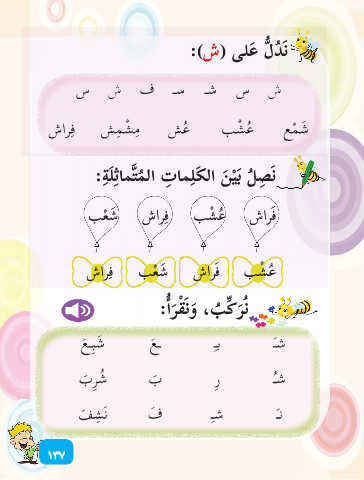 نَدُلُّ عَلى (ش):
ش س شـ سـ ف ش س
شَمْع عُشْب عُش مِشْمِش فِراش
نَصِلُ بَيْنَ الكَلِماتِ المُتَماثِلَةِ:
فَراش عُشْب فِراش شَعْب
عُشْب فَراش شَعْب فِراش
نُرَكِّبُ، وَنَقْرَأُ:
شَـ ـبِـ ـعَ شَبِعَ
شُـ رِ بَ شُرِبَ
نَـ ـشِـ ـفَ نَشِفَ
١٣٧